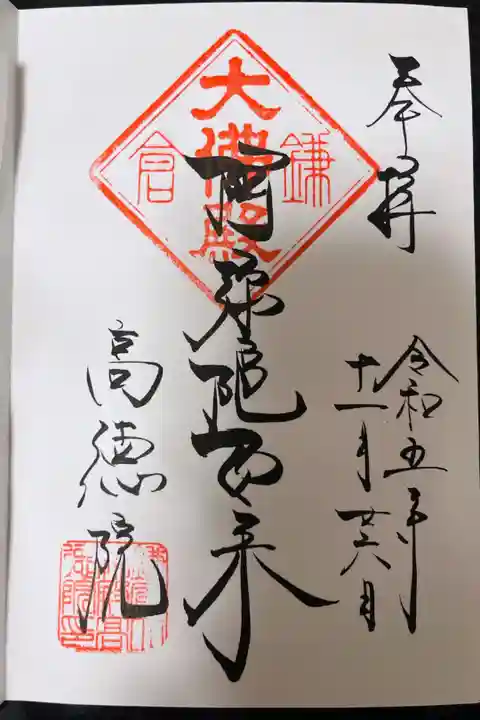 奉拝
令和五年
十一月廿六日
鎌倉
大佛殿
阿弥陀如来
高徳院